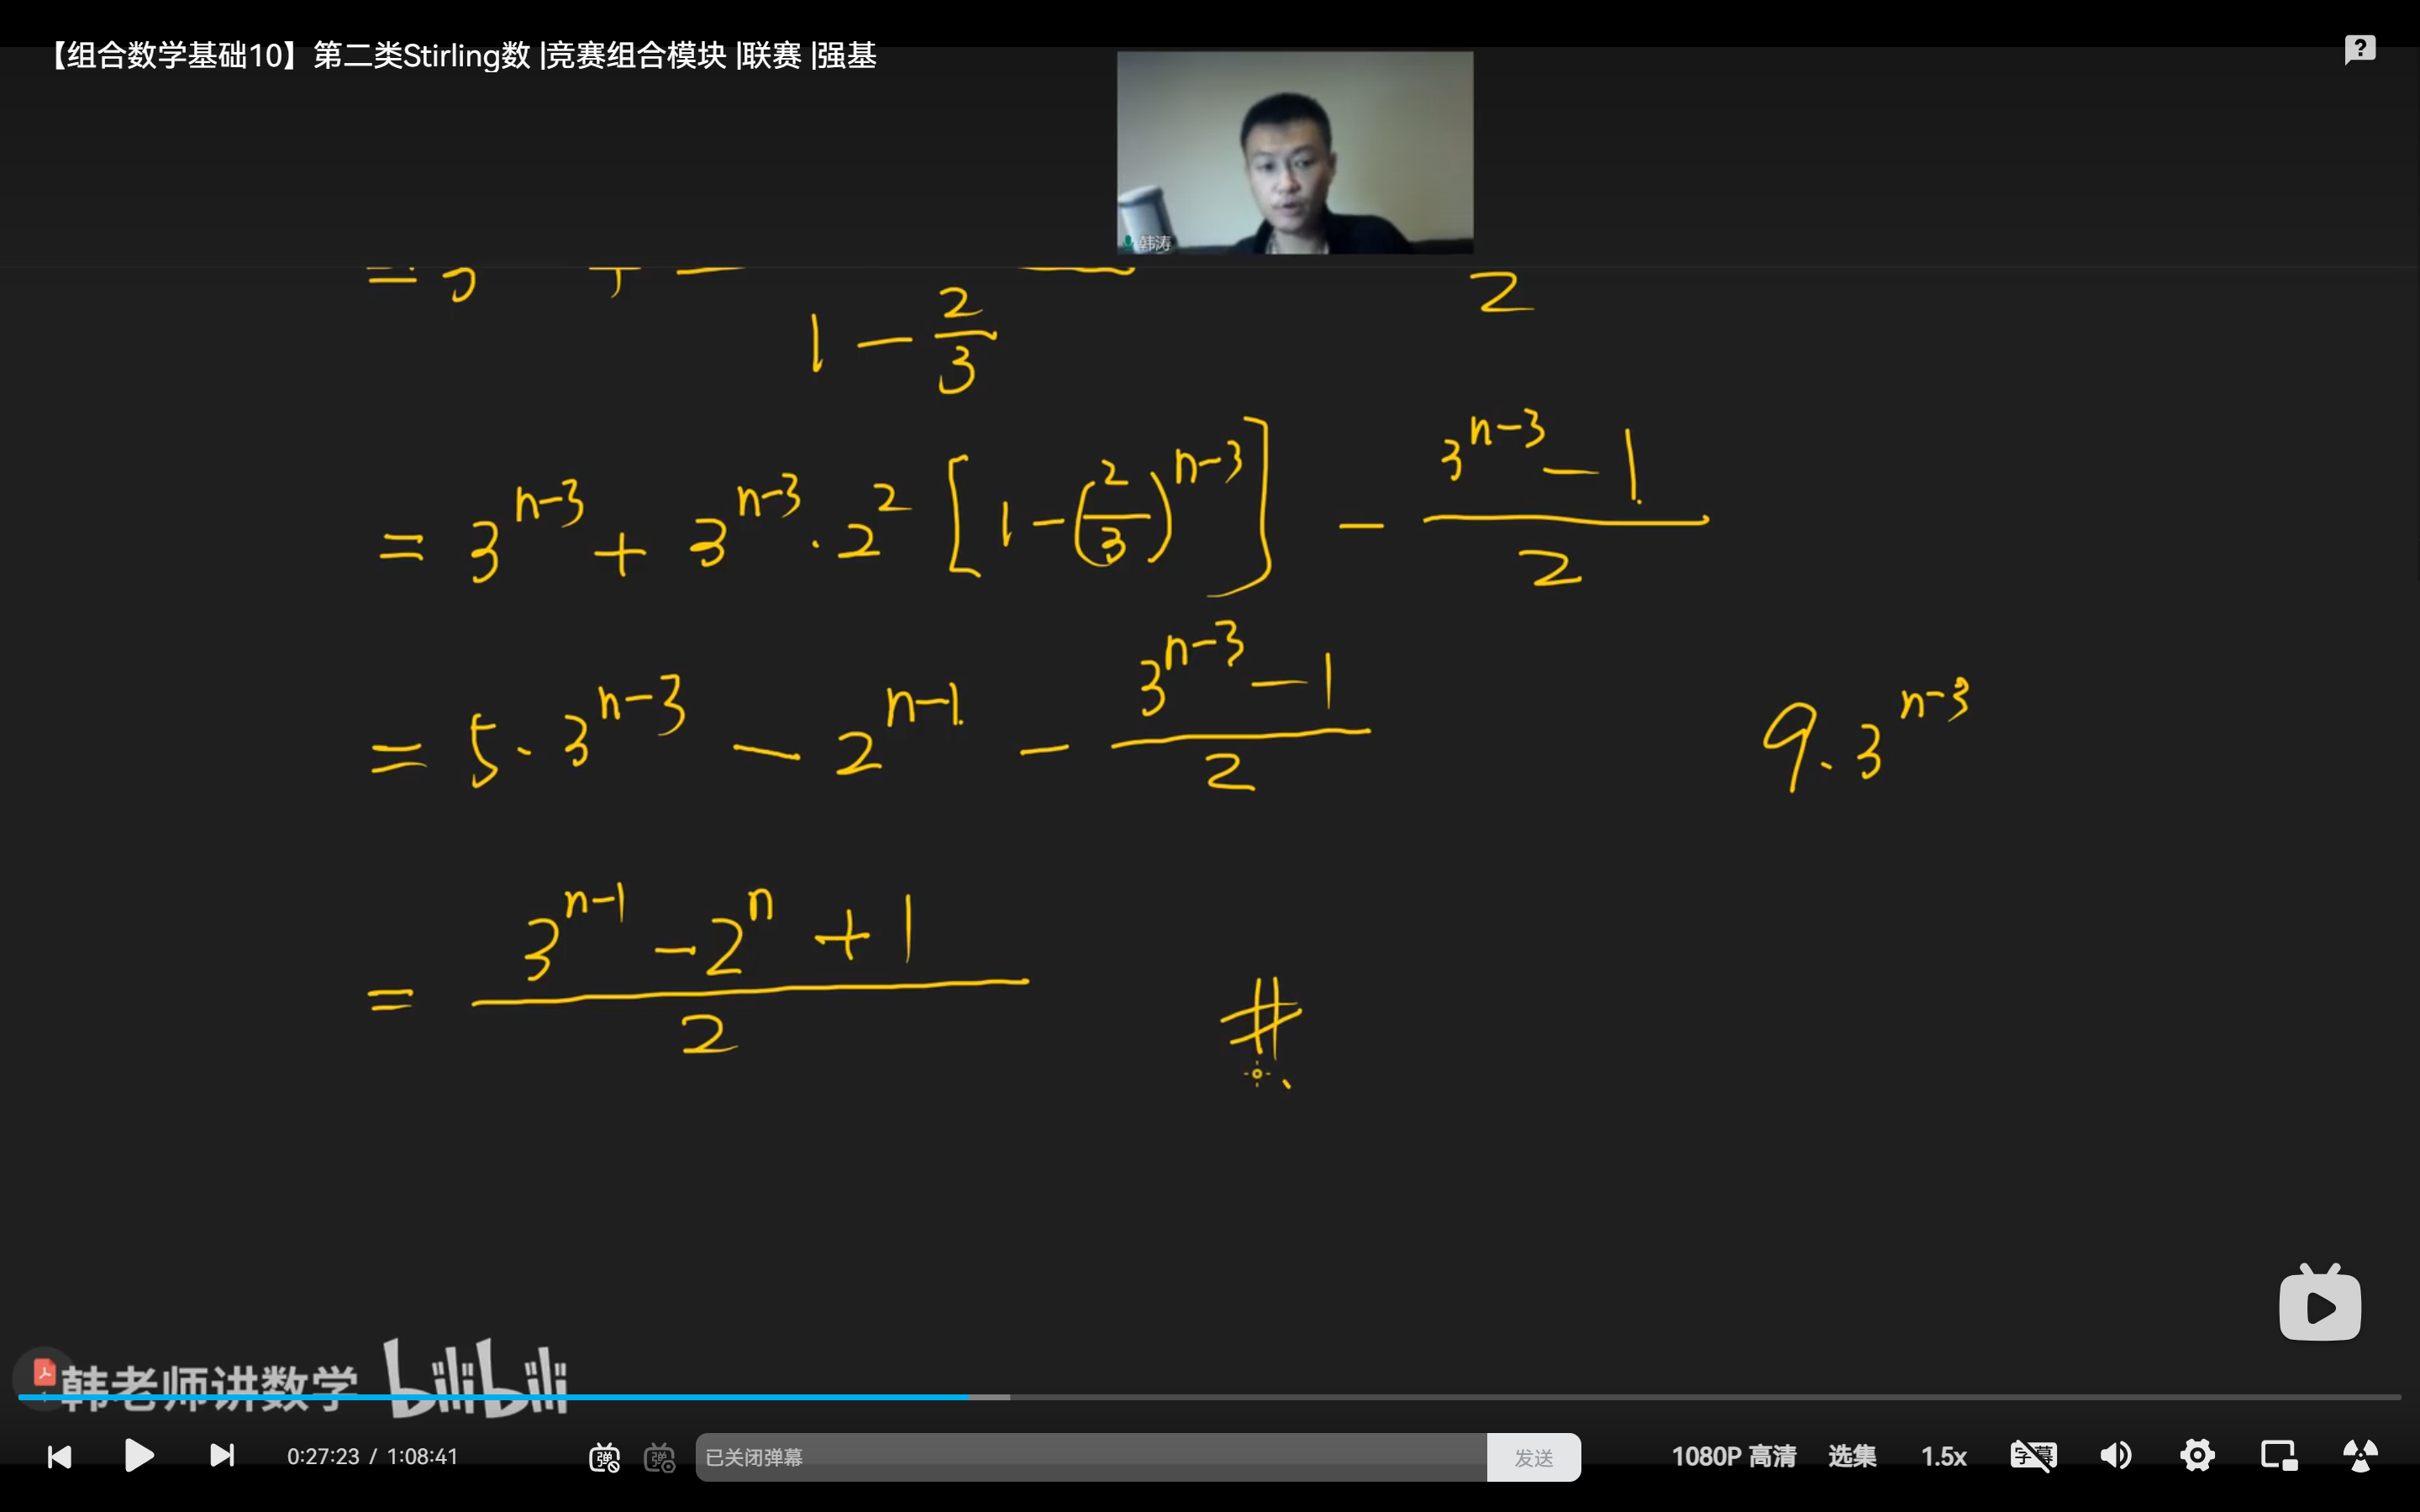 【组合数学基础10】第二类Stirling数 |竞赛组合模块 |联赛 |强基
韩涛
2
1 - 2/3
= 3^{n-3} + 3^{n-3} · 2^2 [1 - (2/3)^{n-3}] - (3^{n-3} - 1)/2
= 5 · 3^{n-3} - 2^{n-1} - (3^{n-3} - 1)/2
9 · 3^{n-3}
= (3^{n-1} - 2^n + 1)/2 #
韩老师讲数学 bilibili
0:27:23 / 1:08:41 弹 弹 已关闭弹幕 发送 1080P 高清 选集 1.5x 字幕